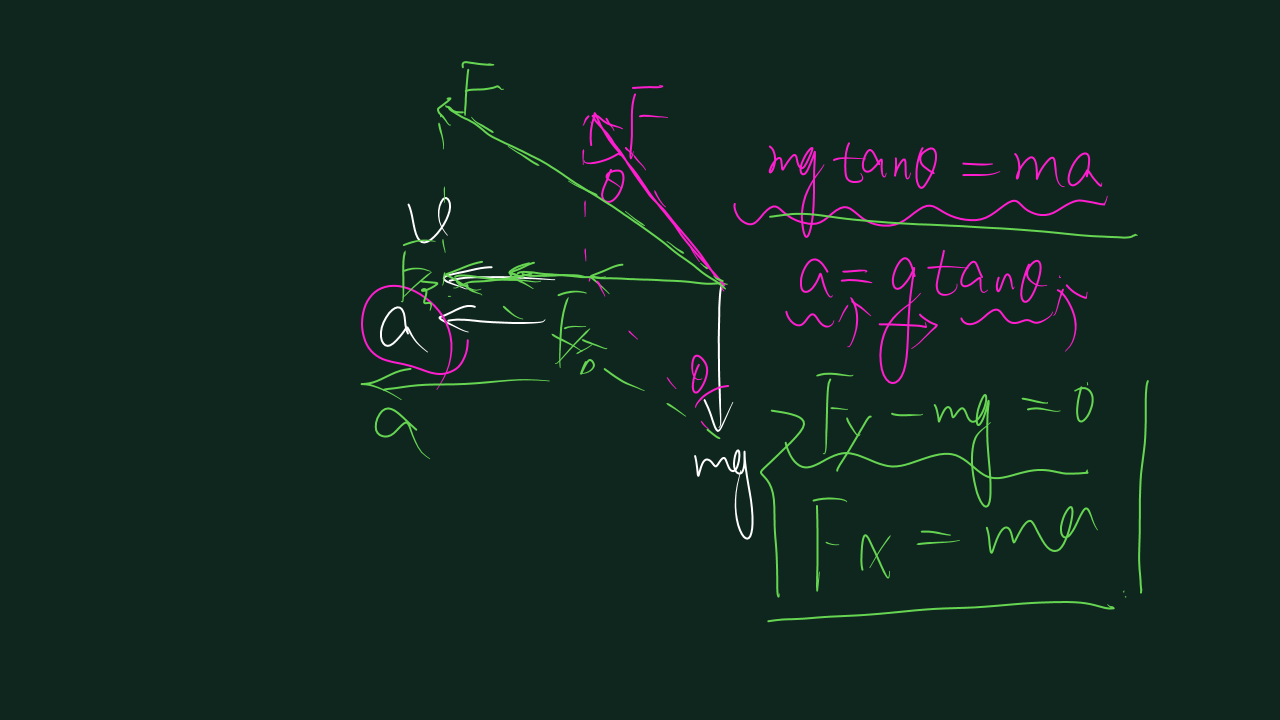 F
F
θ
v
F
a
F
θ
a
mg
mg tanθ = ma
a = g tanθ
Fy - mg = 0
Fx = ma